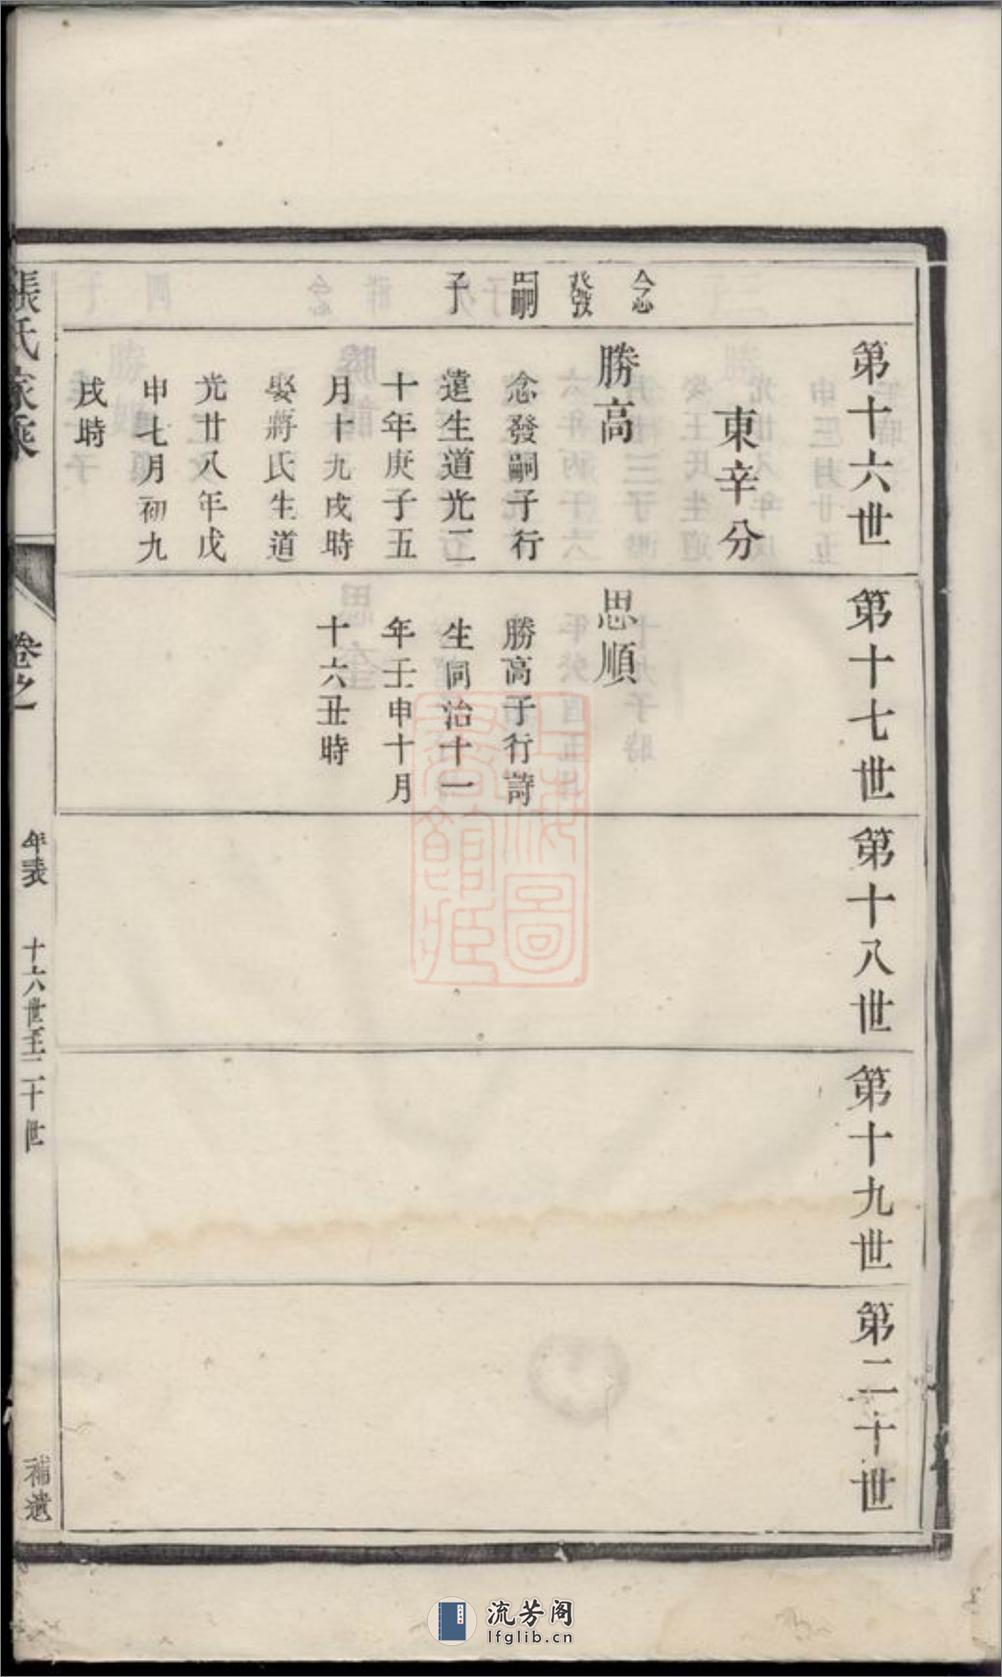 第十六世
東辛分
念
發
嗣
子
勝高
念發嗣子行
達生道光二
十年庚子五
月十九戌時
娶蔣氏生道
光廿八年戊
申七月初九
戌時
第十七世
思順
勝高子行詩
生同治十一
年壬申十月
十六丑時
第十八世
第十九世
第二十世
張氏家乘
卷之
年表
十六世至二十世
補遺
上海圖書館藏
流芳阁
lfglib.cn